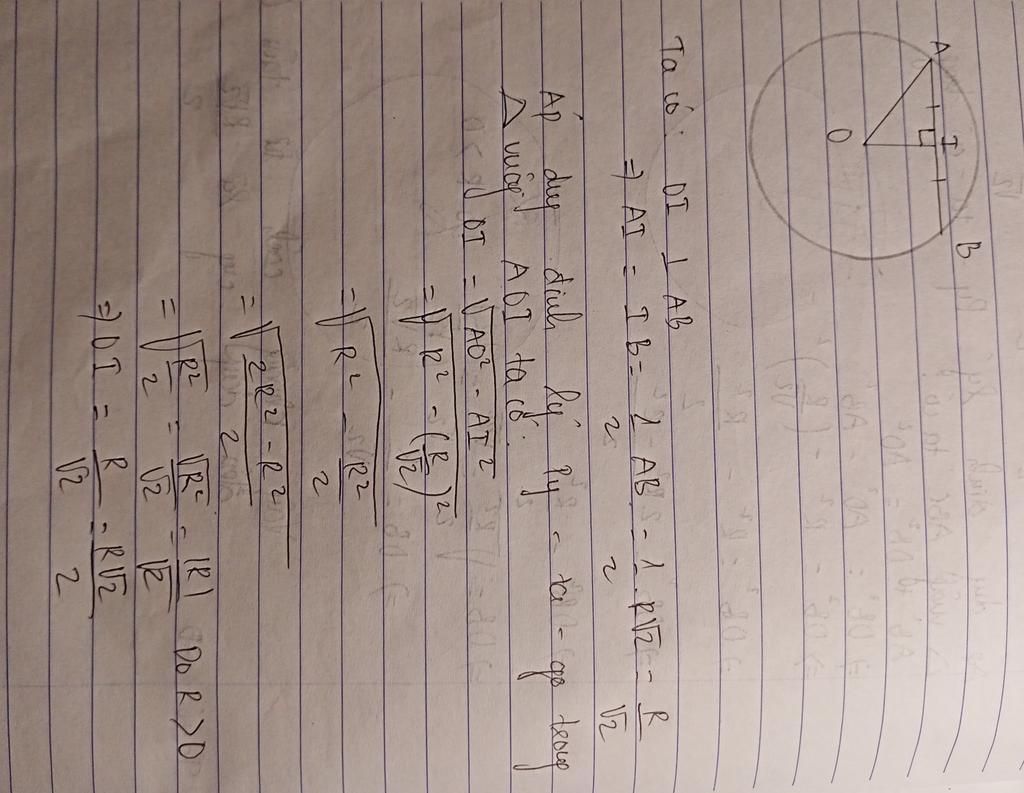 A I B
O
Ta có: OI ⊥ AB
=> AI = IB = 1/2 AB = 1/2 . R√2 = R/√2
Áp dụng định lý Py - ta - go trong
Δ vuông AOI ta có:
OI = √(AO² - AI²)
= √(R² - (R/√2)²)
= √(R² - R²/2)
= √((2R² - R²)/2)
= √(R²/2) = √R²/√2 = |R|/√2 Do R > 0
=> OI = R/√2 = R√2/2